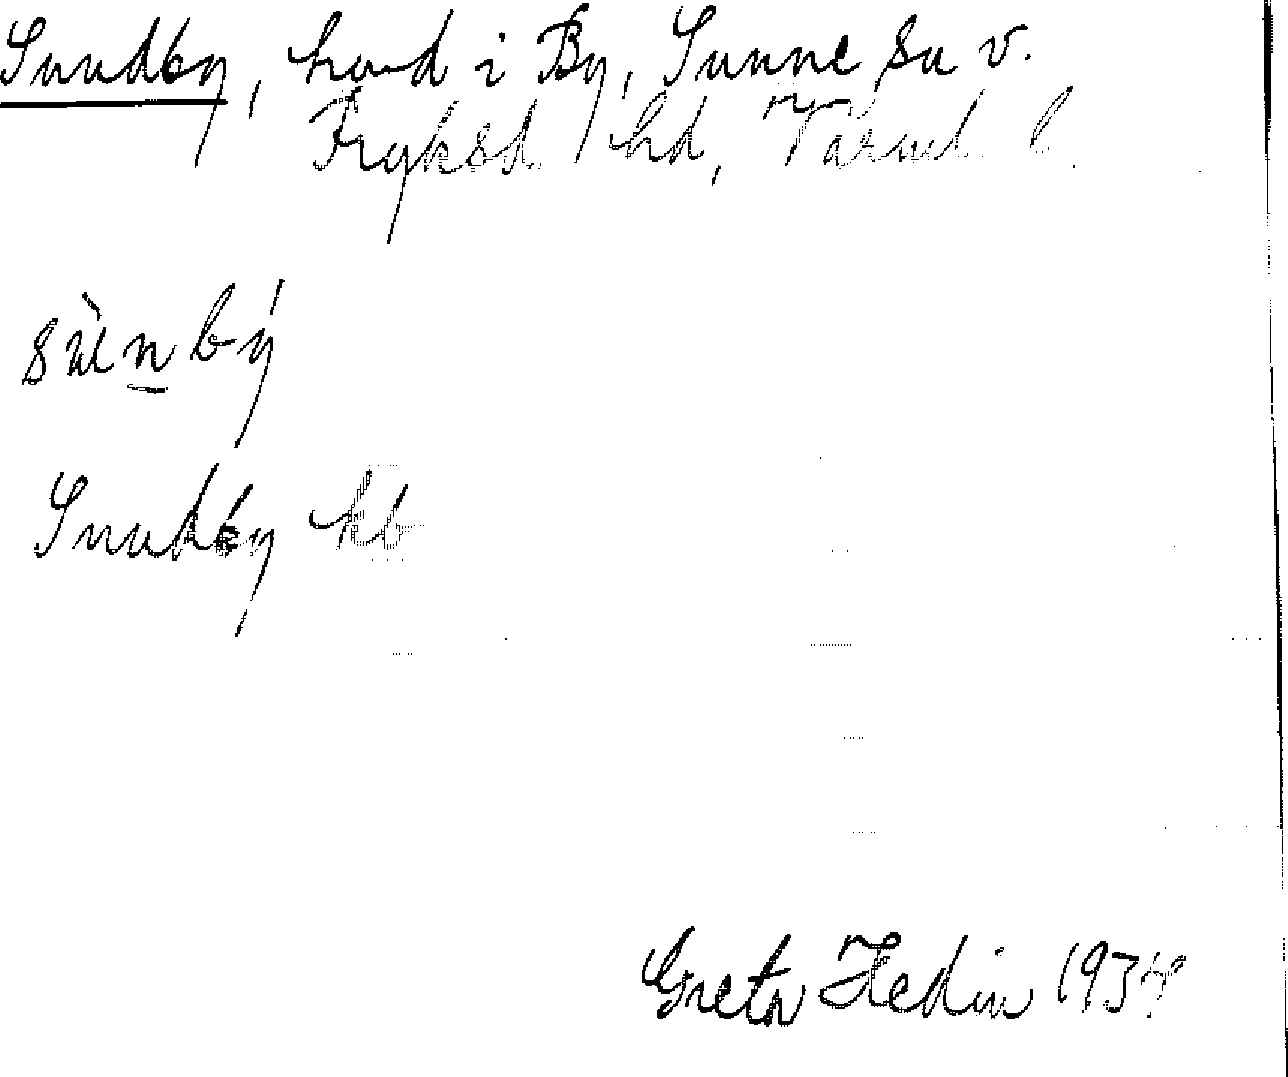 Sundby, hmd i By, Sunne sn v.
Fryksd. hd, Värml. l.
sùnbý
Sundby kb
Greta Hedin 1934